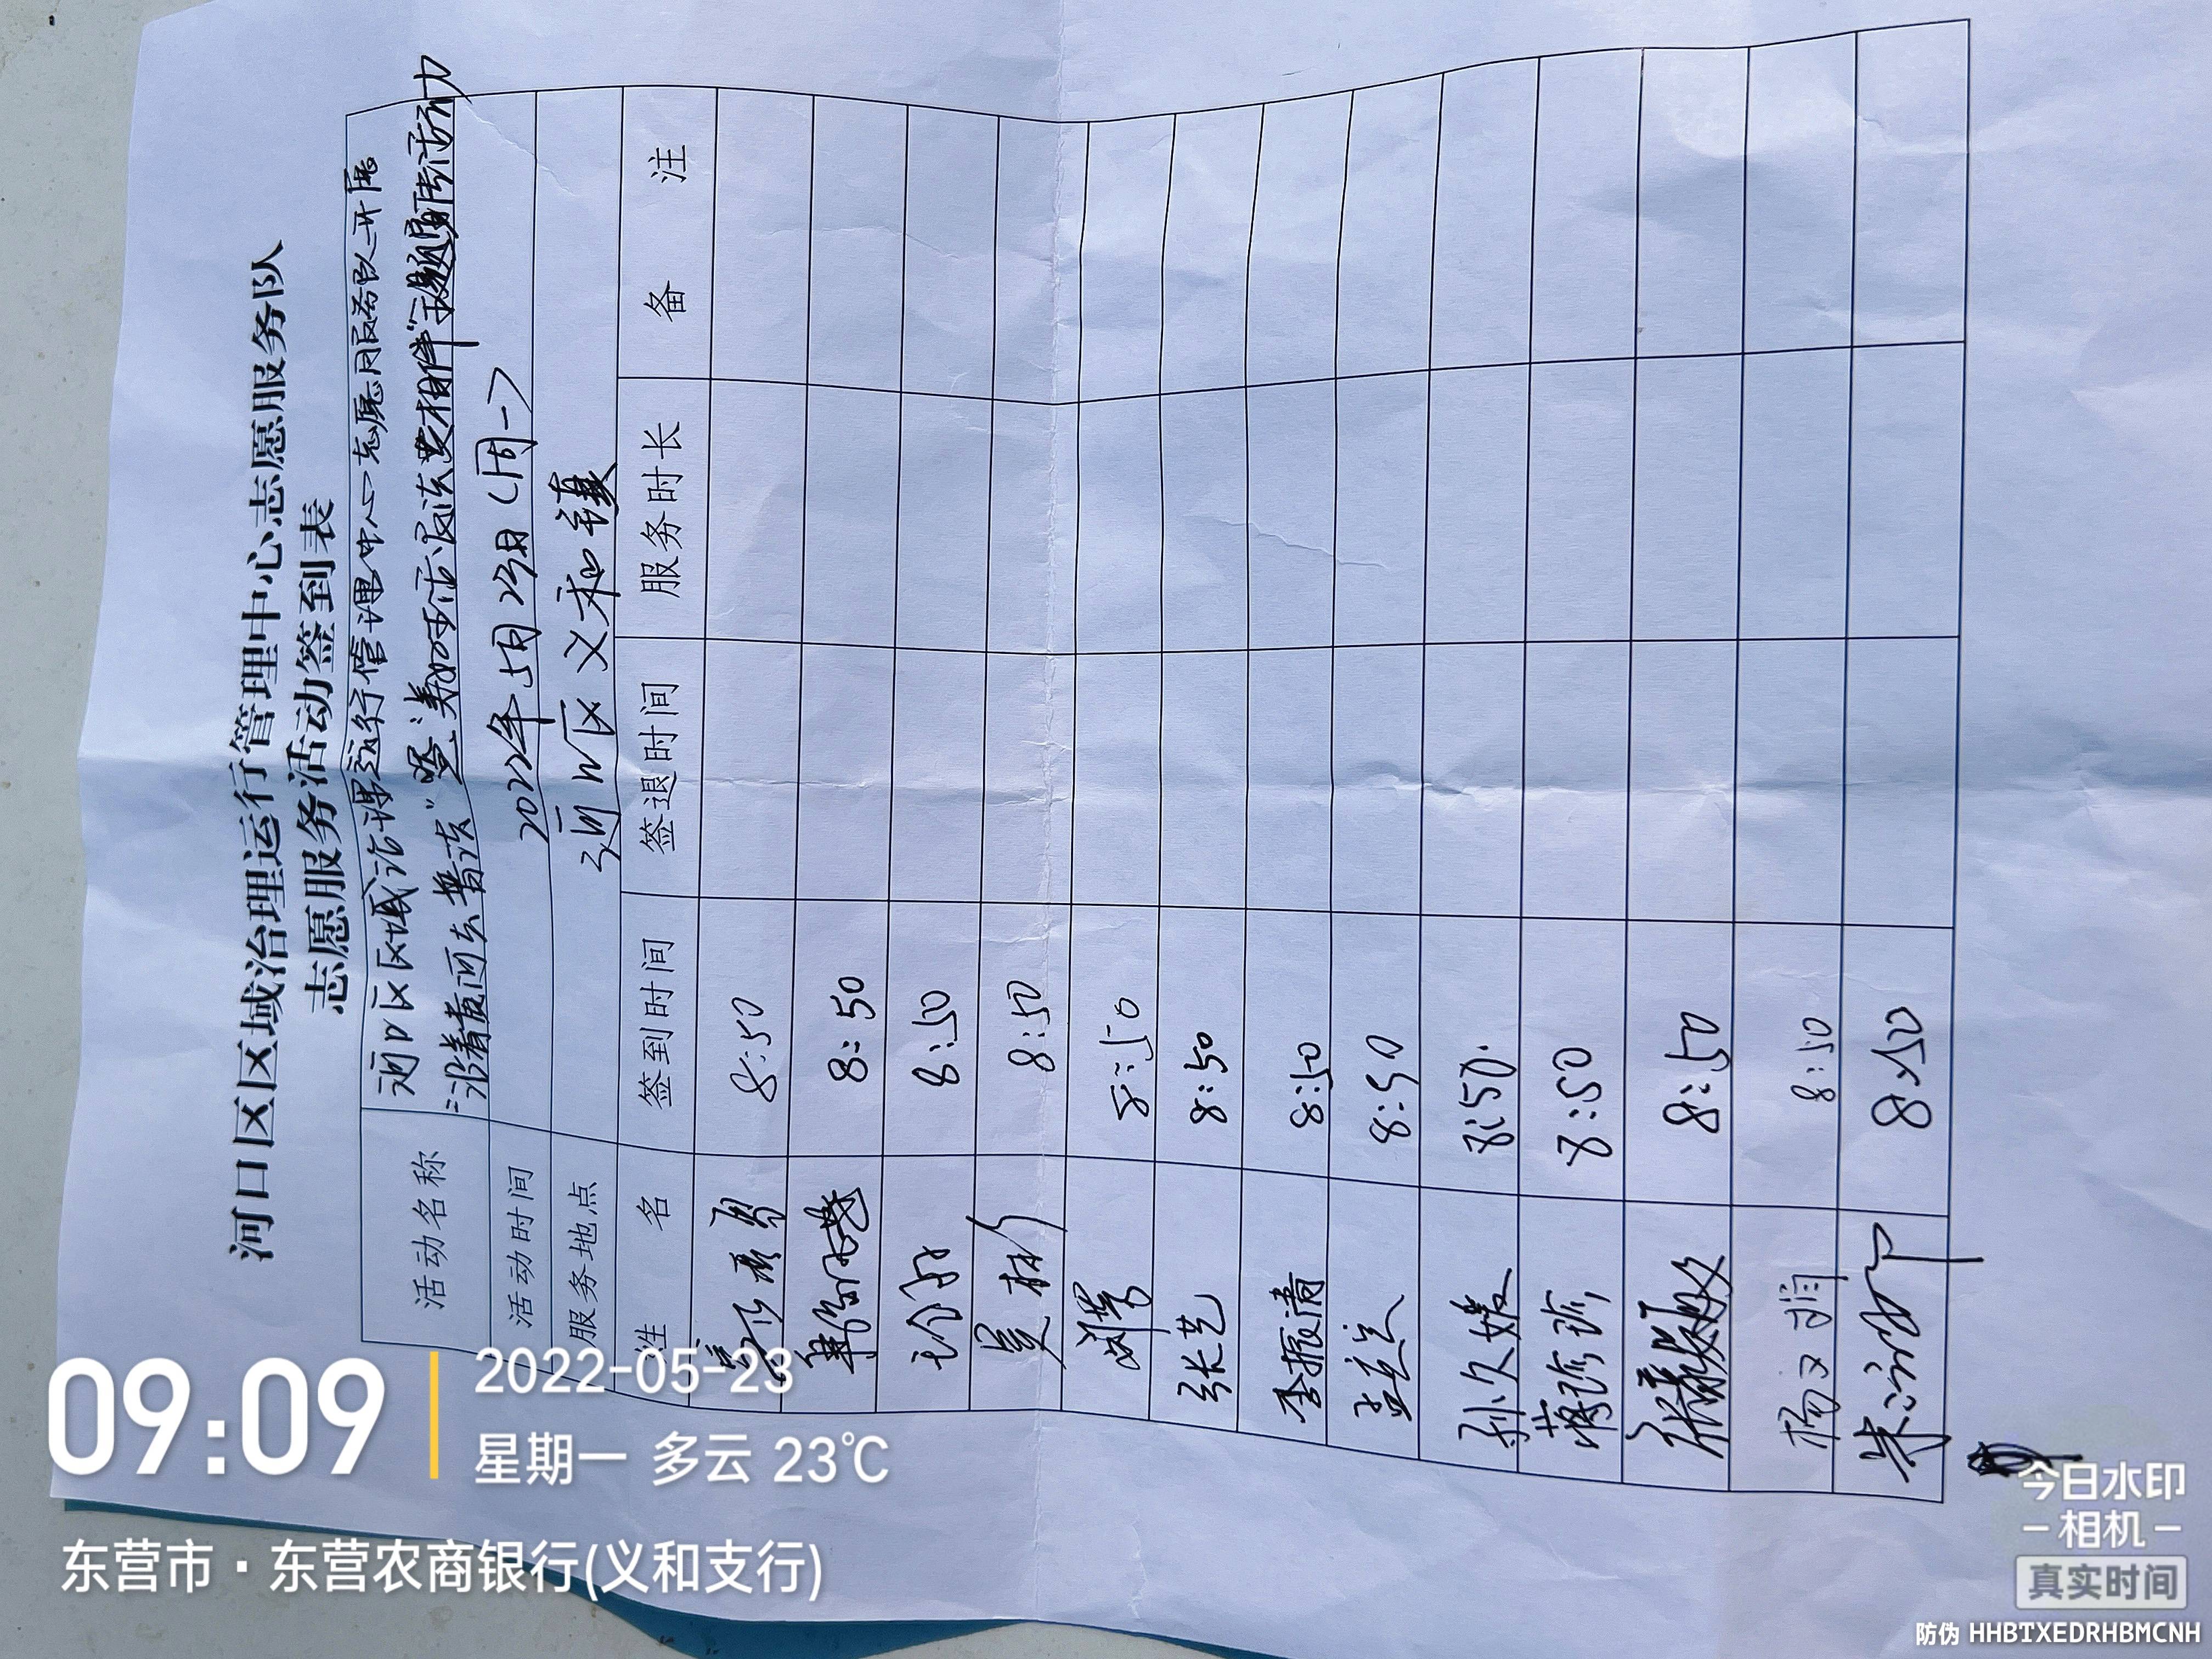 河口区区域治理运行管理中心志愿服务队
志愿服务活动签到表
活动名称 河口区区域治理运行管理中心志愿服务队开展
"沿着黄河去普法"暨"美好生活民法典相伴"主题宣传活动
活动时间 2022年5月23日(周一)
服务地点 河口区义和镇
姓名 签到时间 签退时间 服务时长 备注
8:50
8:50
8:50
8:50
8:50
张艺 8:50
李振清 8:50
8:50
孙久媛 8:50.
蒋珍珍 8:50
8:50
8:50
8:50
09:09
2022-05-23
星期一 多云 23℃
东营市·东营农商银行(义和支行)
今日水印
相机
真实时间
防伪 HHBTXEDRHBMCNH